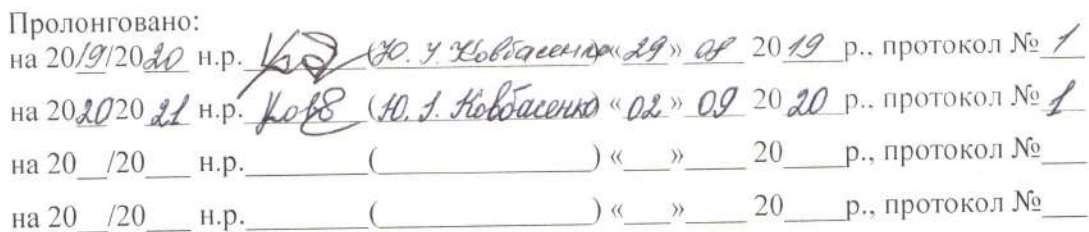 Пролонговано:
на 2019/2020 н.р. (Ю. У. Ковбасенко) «29» 08 2019 р., протокол № 1
на 2020 2021 н.р. (Ю. І. Ковбасенко) «02» 09 2020 р., протокол № 1
на 20__/20___ н.р.________(______________) «___» ____ 20____р., протокол №___
на 20__/20___ н.р.________(______________) «___» ____ 20____р., протокол №___